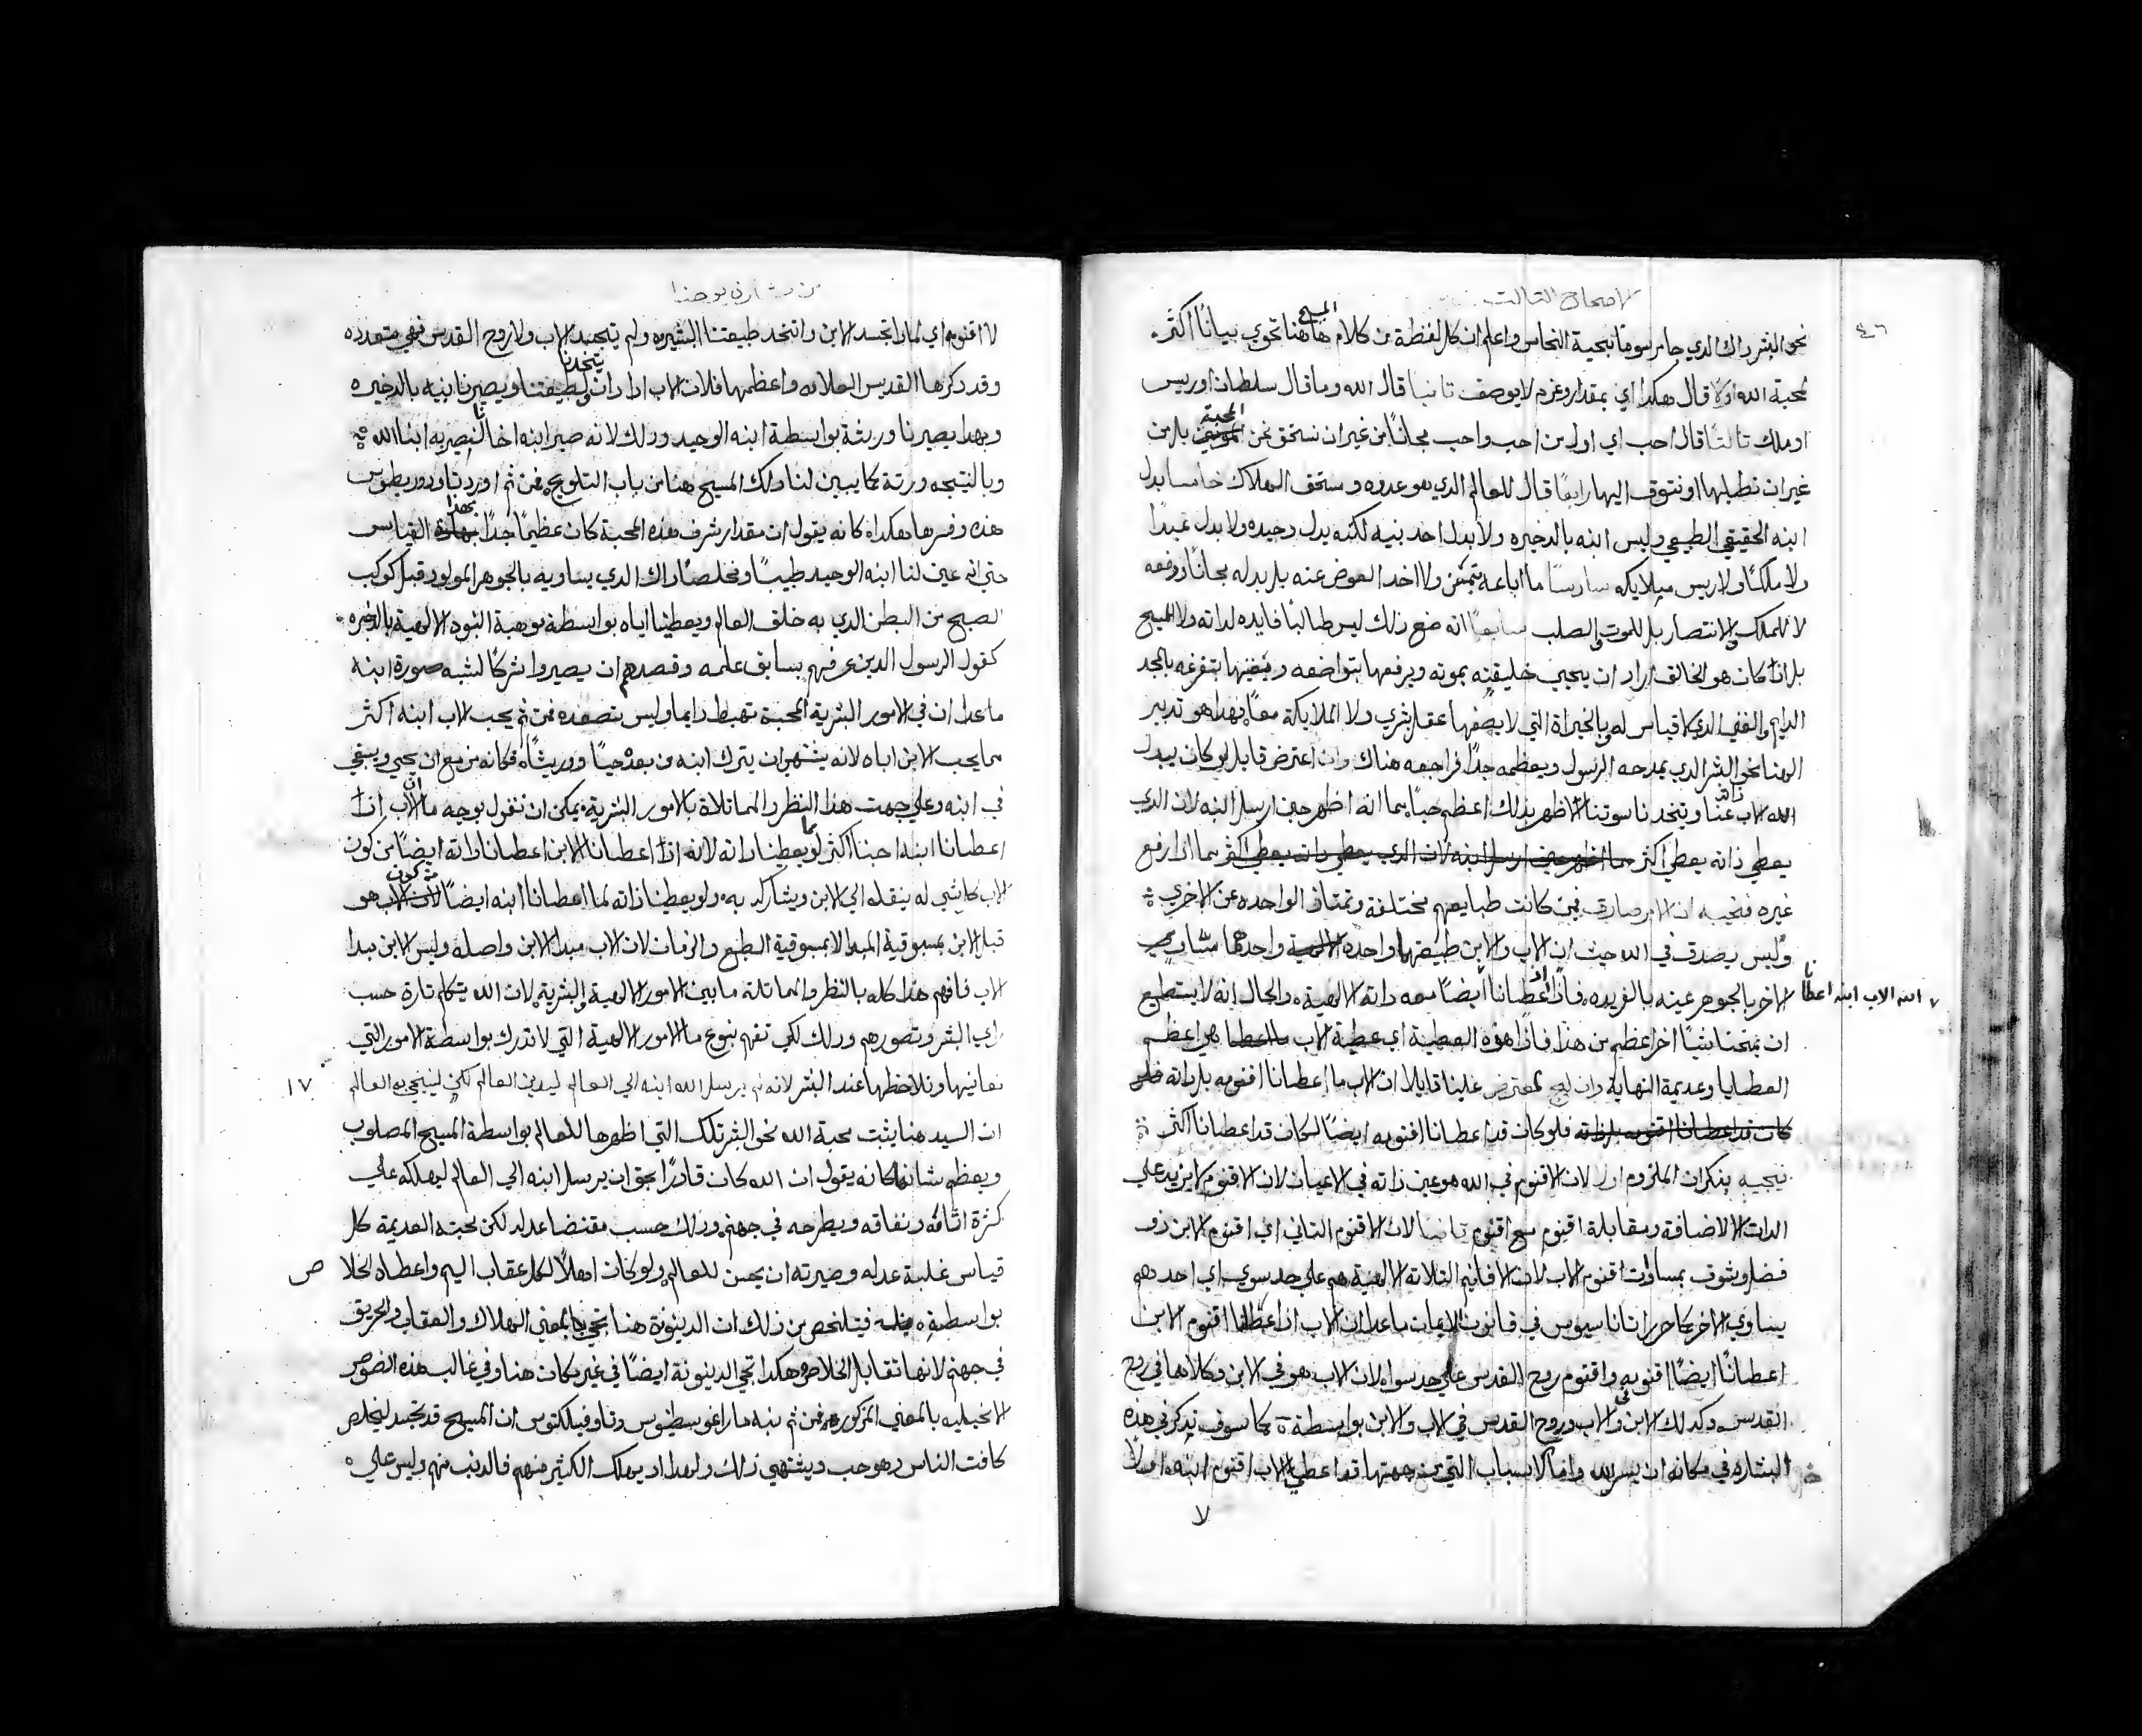 الاصحاح التالت
٤٦
نحو البشر داك الدي جا مرسوما بحية النحاس واعلم ان كل لفظة من كلام المسيح هاهنا تحوي بيانًا اكثر
لمحبة الله اولا قال هكدا اي بمقدار وعزم لا يوصف تانيا قال الله وما قال سلطان او ريس
او ملك تالتًا قال احب اي اول من احب واحب مجانًا من غير ان نستحق نحن المحبة بل من
غير ان نطلبها او نتوق اليها رابعًا قال للعالم الدي هو عدوه ومستحق الهلاك خامسا بدل
ابنه الحقيقي الطبيعي وليس ابنه بالدخيره ولا بدل احد بنيه لكنه بدل وحيده ولا بدل عبدًا
ولا ملكًا ولا ريس ميلايكه سادسًا ما اباعه بتمن ولا اخد العوض عنه بل بدله مجانًا ودفعه
لا للملك والانتصار بل للموت والصلب سابعًا انه صنع دلك ليس طالبًا فايده لداته ولا للمسيح
بل اذا كان هو الخالق اراد ان يحيي خليقته بموته ويرفعها بتواضعه ويغنيها بتفرغه بالمجد
الدايم والغني الدي لا قياس له وبالخيراة التي لا يصفها عقل بشري ولا الملايكة معًا فهدا هو تدبير
الهنا نحو البشر الدي يمدحه الرسول ويعظمه جدًا فراجعه هناك وان اعترض قايل لو كان يبدل
الله الاب داته عنا ويتخد ناسوتنا لاظهر بدلك اعظم حبًا مما انه اظهر حين ارسل ابنه لان الدي
يعطي ذاته يعطي اكثر مما اظهر حين ارسل ابنه لان الدي يعطي داته يعطي اكثر مما ادا رفع
غيره فنجيبه ان الامر صادق فيمن كانت طبايعهم مختلفة وتمتاز الواحده عن الاخري
وليس يصدق في الله حيث ان الاب والابن طبيعتهما واحده الالهية واحدهما مساوي
الاخر بالجوهر عينه بالفريده فاذًا اذ اعطانا ايضًا معه داته الالهية والحال انه لا يستطيع
الله الاب ابنه اعطانا
ان يمنحنا شيًا اخر اعظم من هذا فاذًا هذه العطية اي عطية الاب هي اعظم
العطايا وعديمة النهاية وان لج معترض علينا قايلا ان الاب ما اعطانا اقنومه بل داته فلو
كان قد اعطانا اقنومه بل ذاته فلو كان قد اعطانا اقنومه ايضًا لكان قد اعطانا اكثر
نجيبه بنكران الملزوم اولا لان الاقنوم في الله هو عين ذاته في الاعيان لان الاقنوم لا يزيد علي
الدات الا الاضافة ومقابلة اقنوم مع اقنوم تانيا لان الاقنوم التاني اي اقنوم الابن ذو
فضل وشوق بمساوات اقنوم الاب لان الاقانيم التلاتة الالهية هم علي حد سوي اي احدهم
يساوي الاخر كما حرر اتاناسيوس في قانون الايمان ماعدا ان الاب اذ اعطانا اقنوم الابن
اعطانا ايضًا اقنومه واقنوم روح القدس علي حد سواه لان الاب هو في الابن وكلاهما في روح
القدس وكدلك الابن في الاب وروح القدس في الاب والابن بواسطة كما سوف نذكر في هذه
البشاره في مكانه ان يسر الله واما الاسباب التي من جهتها قد اعطي الاب اقنوم ابنه اولا
لا
من بشارة يوحنا
لا اقنومه اي لماذا تجسد الابن واتخد طبيعتنا البشريه ولم يتجسد الاب ولا روح القدس فهي متعدده
وقد دكرها القديس العلامه واعظمها فلان الاب ادا اراد ان يتخدنا لطبيعتنا ويصيرنا بنيه بالدخيره
وبهدا يصيرنا وريثة بواسطة ابنه الوحيد ودلك لانه صير ابنه اخا لنا لنصير به ابنا الله
وبالنتيجه ورتة كما يبين لنا دلك المسيح هنا من باب التلويح فمن ثم اورد تاودوريطوس
هذه وفسرها هكدا كانه يقول ان مقدار شرف هذه المحبة كان عظيمًا جدًا بهذا القياس
حتي انه عين لنا ابنه الوحيد طبيبًا ومخلصًا داك الدي يساويه بالجوهر المولود قبل كوكب
الصبح من البطن الدي به خلق العالم ويعطينا اياه بواسطة موهبة البنوه الالهية بالدخيره
كقول الرسول الدين عرفهم بسابق علمه وقصدهم ان يصيروا شركًا لشبه صورة ابنه
ماعدا ان في الامور البشرية المحبة تهبط دايما وليس تصعد فمن ثم يحب الاب ابنه اكثر
مما يحب الابن اباه لانه يشتهي ان يترك ابنه من بعده حيًا ووريثًا فكانه مزمع ان يحيي ويبقي
في ابنه وعلي جهت هذا النظر والمماتلاة بالامور البشرية يمكن ان نقول بوجه ما ان الاب اذا
اعطانا ابنه احبنا اكثر مما لو يعطينا داته لانه اذا اعطانا الابن اعطانا داته ايضًا من كون
الاب كل شي له ينقله الي الابن ويشاركه به ولو يعطينا ذاته لما اعطانا ابنه ايضًا من كون الاب هو
قبل الابن بمسبوقية المبدا لا بمسبوقية الطبع والزمان لان الاب مبدا الابن واصله وليس الابن مبدا
الاب فافهم هذا كله بالنظر والمماتلة ما بين الامور الالهية والبشرية لان الله يتكلم تارة حسب
راي البشر وتصورهم ودلك لكي نفهم بنوع ما الامور الالهية التي لا تدرك بواسطة الامور التي
نعاينها ونلاحظها عند البشر لانه لم يرسل الله ابنه الي العالم ليدين العالم لكن لينجي به العالم
١٧
ان السيد هنا يثبت محبة الله نحو البشر تلك التي اظهرها للعالم بواسطة المسيح المصلوب
ويعظم شانها كانه يقول ان الله كان قادرًا بحق ان يرسل ابنه الي العالم ليهلكه علي
كثرة اثامه ونفاقه ويطرحه في جهنم وذلك حسب مقتضا عدله لكن محبته العديمة كل
قياس غلبة عدله وصيرته ان يحسن للعالم ولو كان اهلًا لكل عقاب اليم واعطاه الخلا
ص
بواسطته فيتلخص من ذلك ان الدينونة هنا تجي بمعني الهلاك والعقاب والحريق
في جهنم لانها تقابل الخلاص وهكدا تجي الدينونة ايضًا في غير مكان هنا وفي غالب هذه النصوص
الانجيليه بالمعني المذكوره فمن ثم نبه مار اغوسطينوس وتاوفيلكتوس ان المسيح قد تجسد ليخلص
كافت الناس وهو حب ويشتهي ذلك ولهدا اد يهلك الكثير منهم فالدنب منهم وليس علي